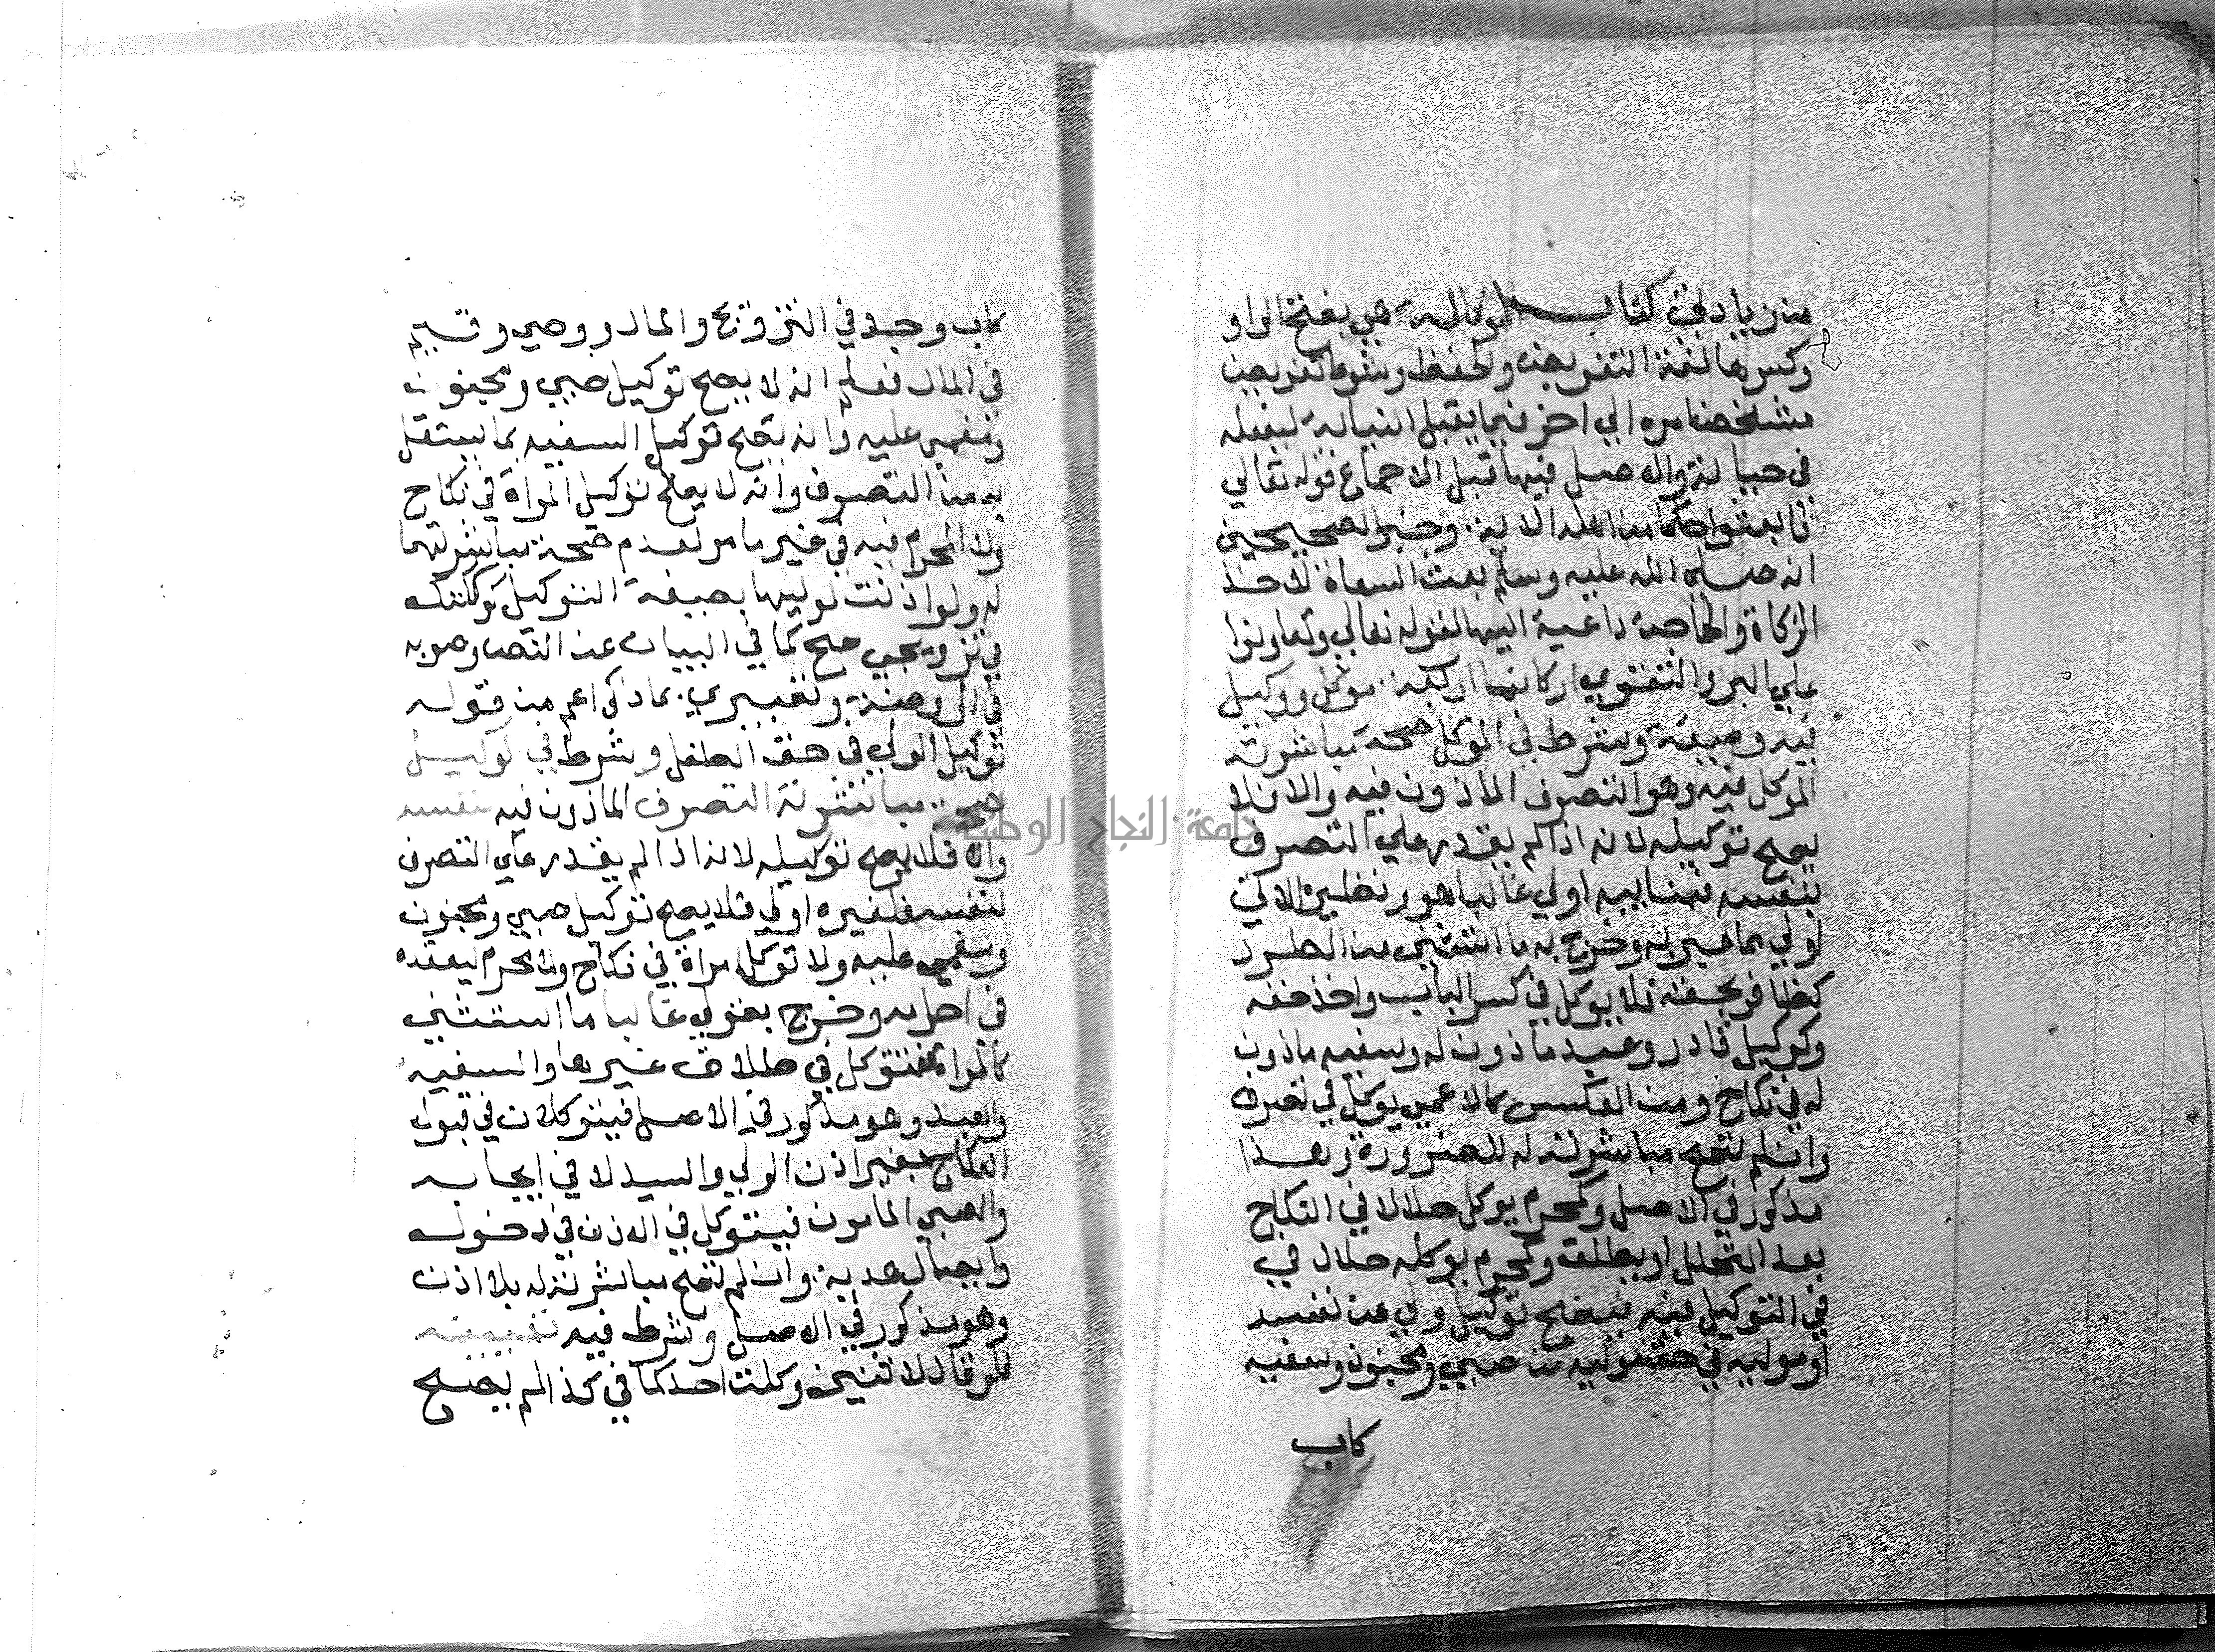 من زيادتي كتاب الوكالة هي بفتح الواو
وكسرها لغة التفويض والحفظ وشرعا تفويض
شخص امره الي اخر فيما يقبل النيابة ليفعله
في حياته والاصل فيها قبل الاجماع قوله تعالي
فابعثوا حكما من اهله الاية وخبر الصحيحين
انه صلي الله عليه وسلم بعث السعاة لاخذ
الزكاة والحاجة داعية اليها لقوله تعالي وتعاونوا
علي البر والتقوي اركانها اربعة موكل ووكيل
فيه وصيغة وشرط في الموكل صحة مباشرته
الموكل فيه وهو التصرف الماذون فيه والا فلا
يصح توكيله لانه اذا لم يقدر علي التصرف
بنفسه فنايبه اولي غالبا هو ونظيره الاتي
اولي مما عبر به وخرج به ما استثني من الطرد
كظافر بحقه فلا يوكل في كسر الباب واخذ حقه
وكوكيل قادر وعبد ماذون له وسفيه ماذون
له في نكاح ومن العكس كالاعمي يوكل في تصرف
وان لم تصح مباشرته له للضرورة وهذا
مذكور في الاصل وكمحرم يوكل حلالا في النكاح
بعد التحلل او يطلق وكمحرم يوكله حلال في
في التوكيل فيه فيصح توكيل ولي عن نفسه
او موليه في حق موليه من صبي ومجنون وسفيه
كاب
كاب وجد في التزويج والمال ووصي وقيم
في المال فعلم انه لا يصح توكيل صبي ومجنون
ومغمي عليه وانه يصح توكيل السفيه بما يستقل
به من التصرف وانه لا يصح توكيل المراة في نكاح
ولا المحرم فيه في غير ما مر لعدم صحة مباشرتهما
له ولو اذنت لوليها بصيغة التوكيل كوكلتك
في تزويجي صح كما في البيان عن النص وصوبه
في الروضة وتعبيري بما ذكر اعم من قوله
توكيل الولي في حق الطفل وشرط في الوكيل
صحة مباشرته التصرف الماذون فيه لنفسه
والا فلا يصح توكيله لانه اذا لم يقدر علي التصرف
لنفسه فلغيره اولي فلا يصح توكيل صبي ومجنون
ومغمي عليه ولا توكل امراة في نكاح ولا محرم ليعقده
في احرامه وخرج بقولي غالبا ما استثني
كالمراة فتتوكل في طلاق غيرها والسفيه
والعبد وهو مذكور في الاصل فيتوكلان في قبول
النكاح بغير اذن الولي والسيد لا في ايجابه
والصبي المامون فيتوكل في الاذن في دخول
وايصال هدية وان لم تصح مباشرته له بلا اذن
وهو مذكور في الاصل وشرط فيه تعيينه
فلو قال لاثنين وكلت احدكما في كذا لم يصح
جامعة النجاح الوطنية